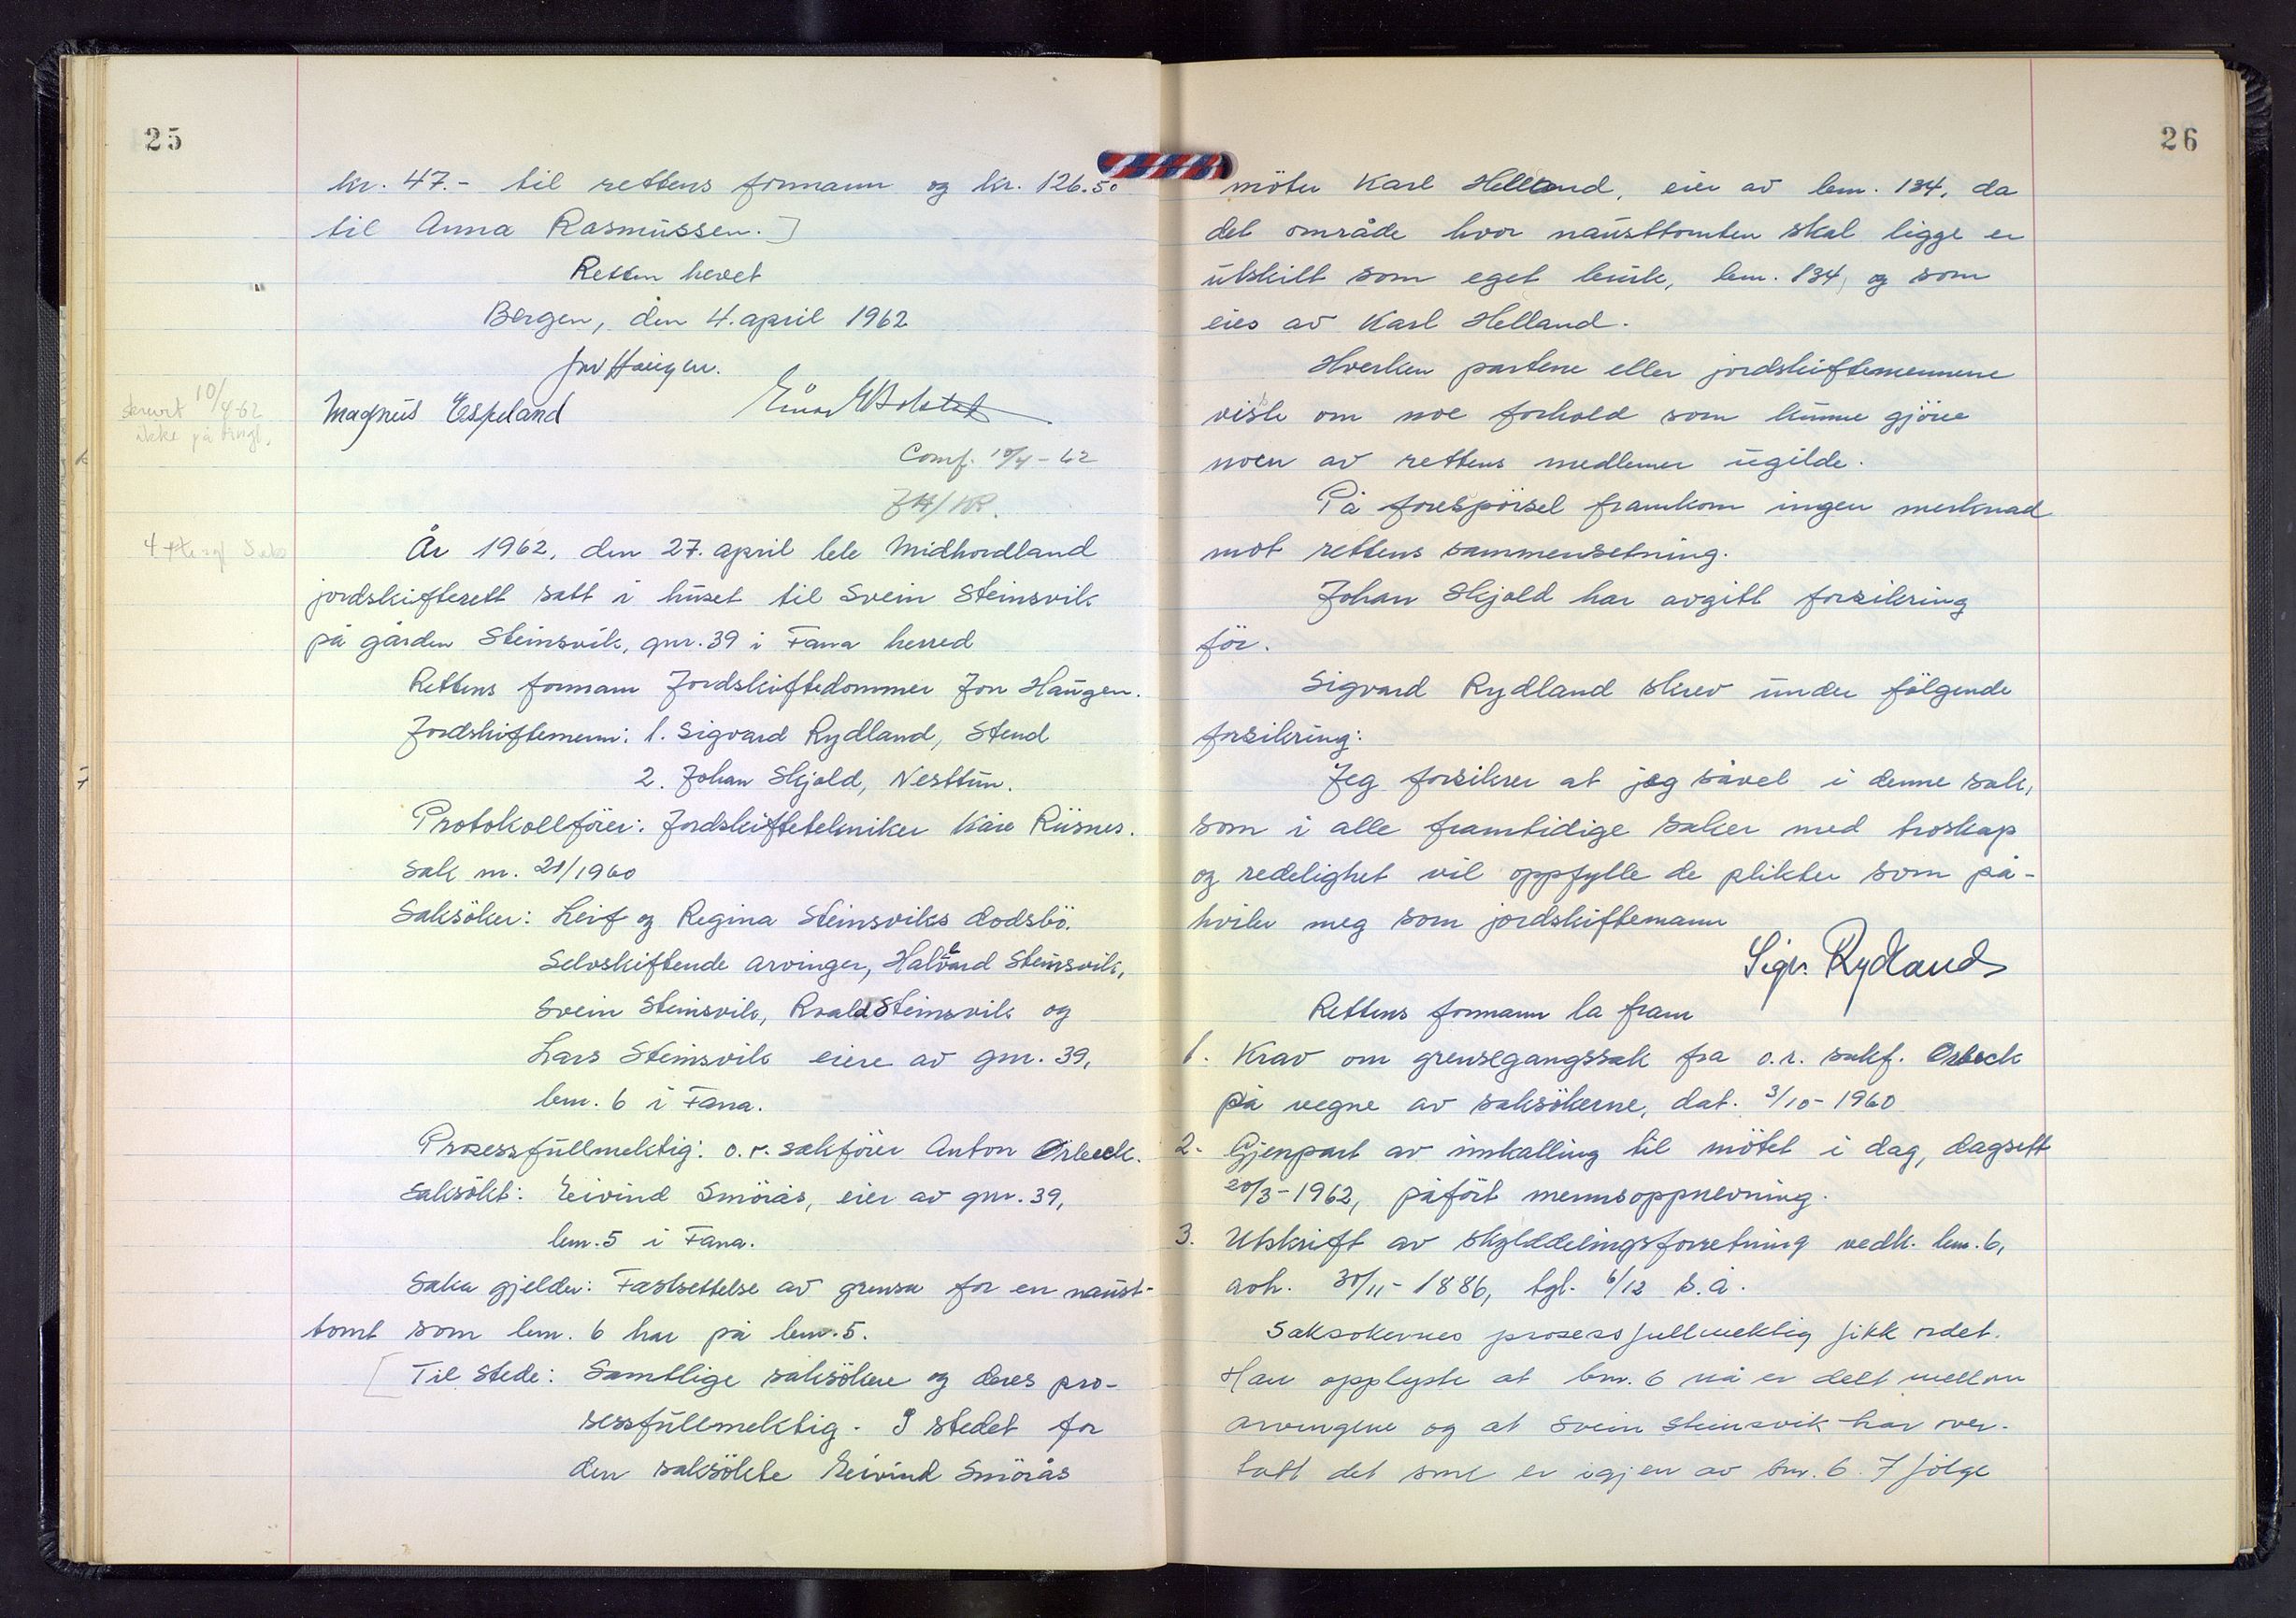 25
kr. 47.- til rettens formann og kr. 126.50
til Anna Rasmussen.]
Retten hevet
Bergen, den 4. april 1962
Jon Haugen.
Magnus Espeland
10/4-62
ikke på tingl.
Conf. 10/4-62
JH/KR.
År 1962, den 27. april ble Midhordland
jordskifterett satt i huset til Svein Steinsvik
på gården Steinsvik, gnr. 39 i Fana herred
Rettens formann Jordskiftedommer Jon Haugen.
Jordskiftemenn: 1. Sigvard Rydland, Stend
2. Johan Skjold, Nesttun.
Protokollförer: Jordskiftetekniker Kåre Risnes.
Sak nr. 21/1960
Saksöker: Leif og Regina Steinsviks dodsbö.
Selvskiftende arvinger, Halvard Steinsvik,
Svein Steinsvik, Roald Steinsvik og
Lars Steinsvik eiere av gnr. 39,
bnr. 6 i Fana.
Prosessfullmektig: o.r. sakförer Anton Orbeck.
Saksökt: Eivind Smörås, eier av gnr. 39,
bnr. 5 i Fana.
Saka gjelder: Fastsettelse av grensa for en naust-
tomt som bnr. 6 har på bnr. 5.
[Til stede: Samtlige saksökere og deres pro-
sessfullmektig. I stedet for
den saksökte Eivind Smörås
26
möter Karl Helland, eier av bnr. 134, da
det område hvor nausttomten skal ligge er
utskilt som eget bruk, bnr. 134, og som
eies av Karl Helland.
Hverken partene eller jordskiftemennene
visste om noe forhold som kunne gjöre
noen av rettens medlemer ugilde.
På forespörsel framkom ingen merknad
mot rettens sammensetning.
Johan Skjold har avgitt forsikring
för.
Sigvard Rydland skrev under fölgende
forsikring:
Jeg forsikrer at jeg såvel i denne sak,
som i alle framtidige saker med troskap
og redelighet vil oppfylle de plikter som på-
hviler meg som jordskiftemann
Sigv. Rydland
Rettens formann la fram
1. Krav om grensegangssak fra o.r. sakf. Orbeck
på vegne av saksökerne, dat. 3/10-1960
2. Gjenpart av innkalling til mötet i dag, dagsett
20/3-1962, påfört mennsoppnevning.
3. Utskrift av skylddelingsforretning vedk. bnr. 6,
avh. 30/11-1886, tgl. 6/12 s.å.
Saksokernes prosessfullmektig fikk ordet.
Han opplyste at bnr. 6 nå er delt mellom
arvingene og at Svein Steinsvik har over-
tatt det som er igjen av bnr. 6. Ifölge